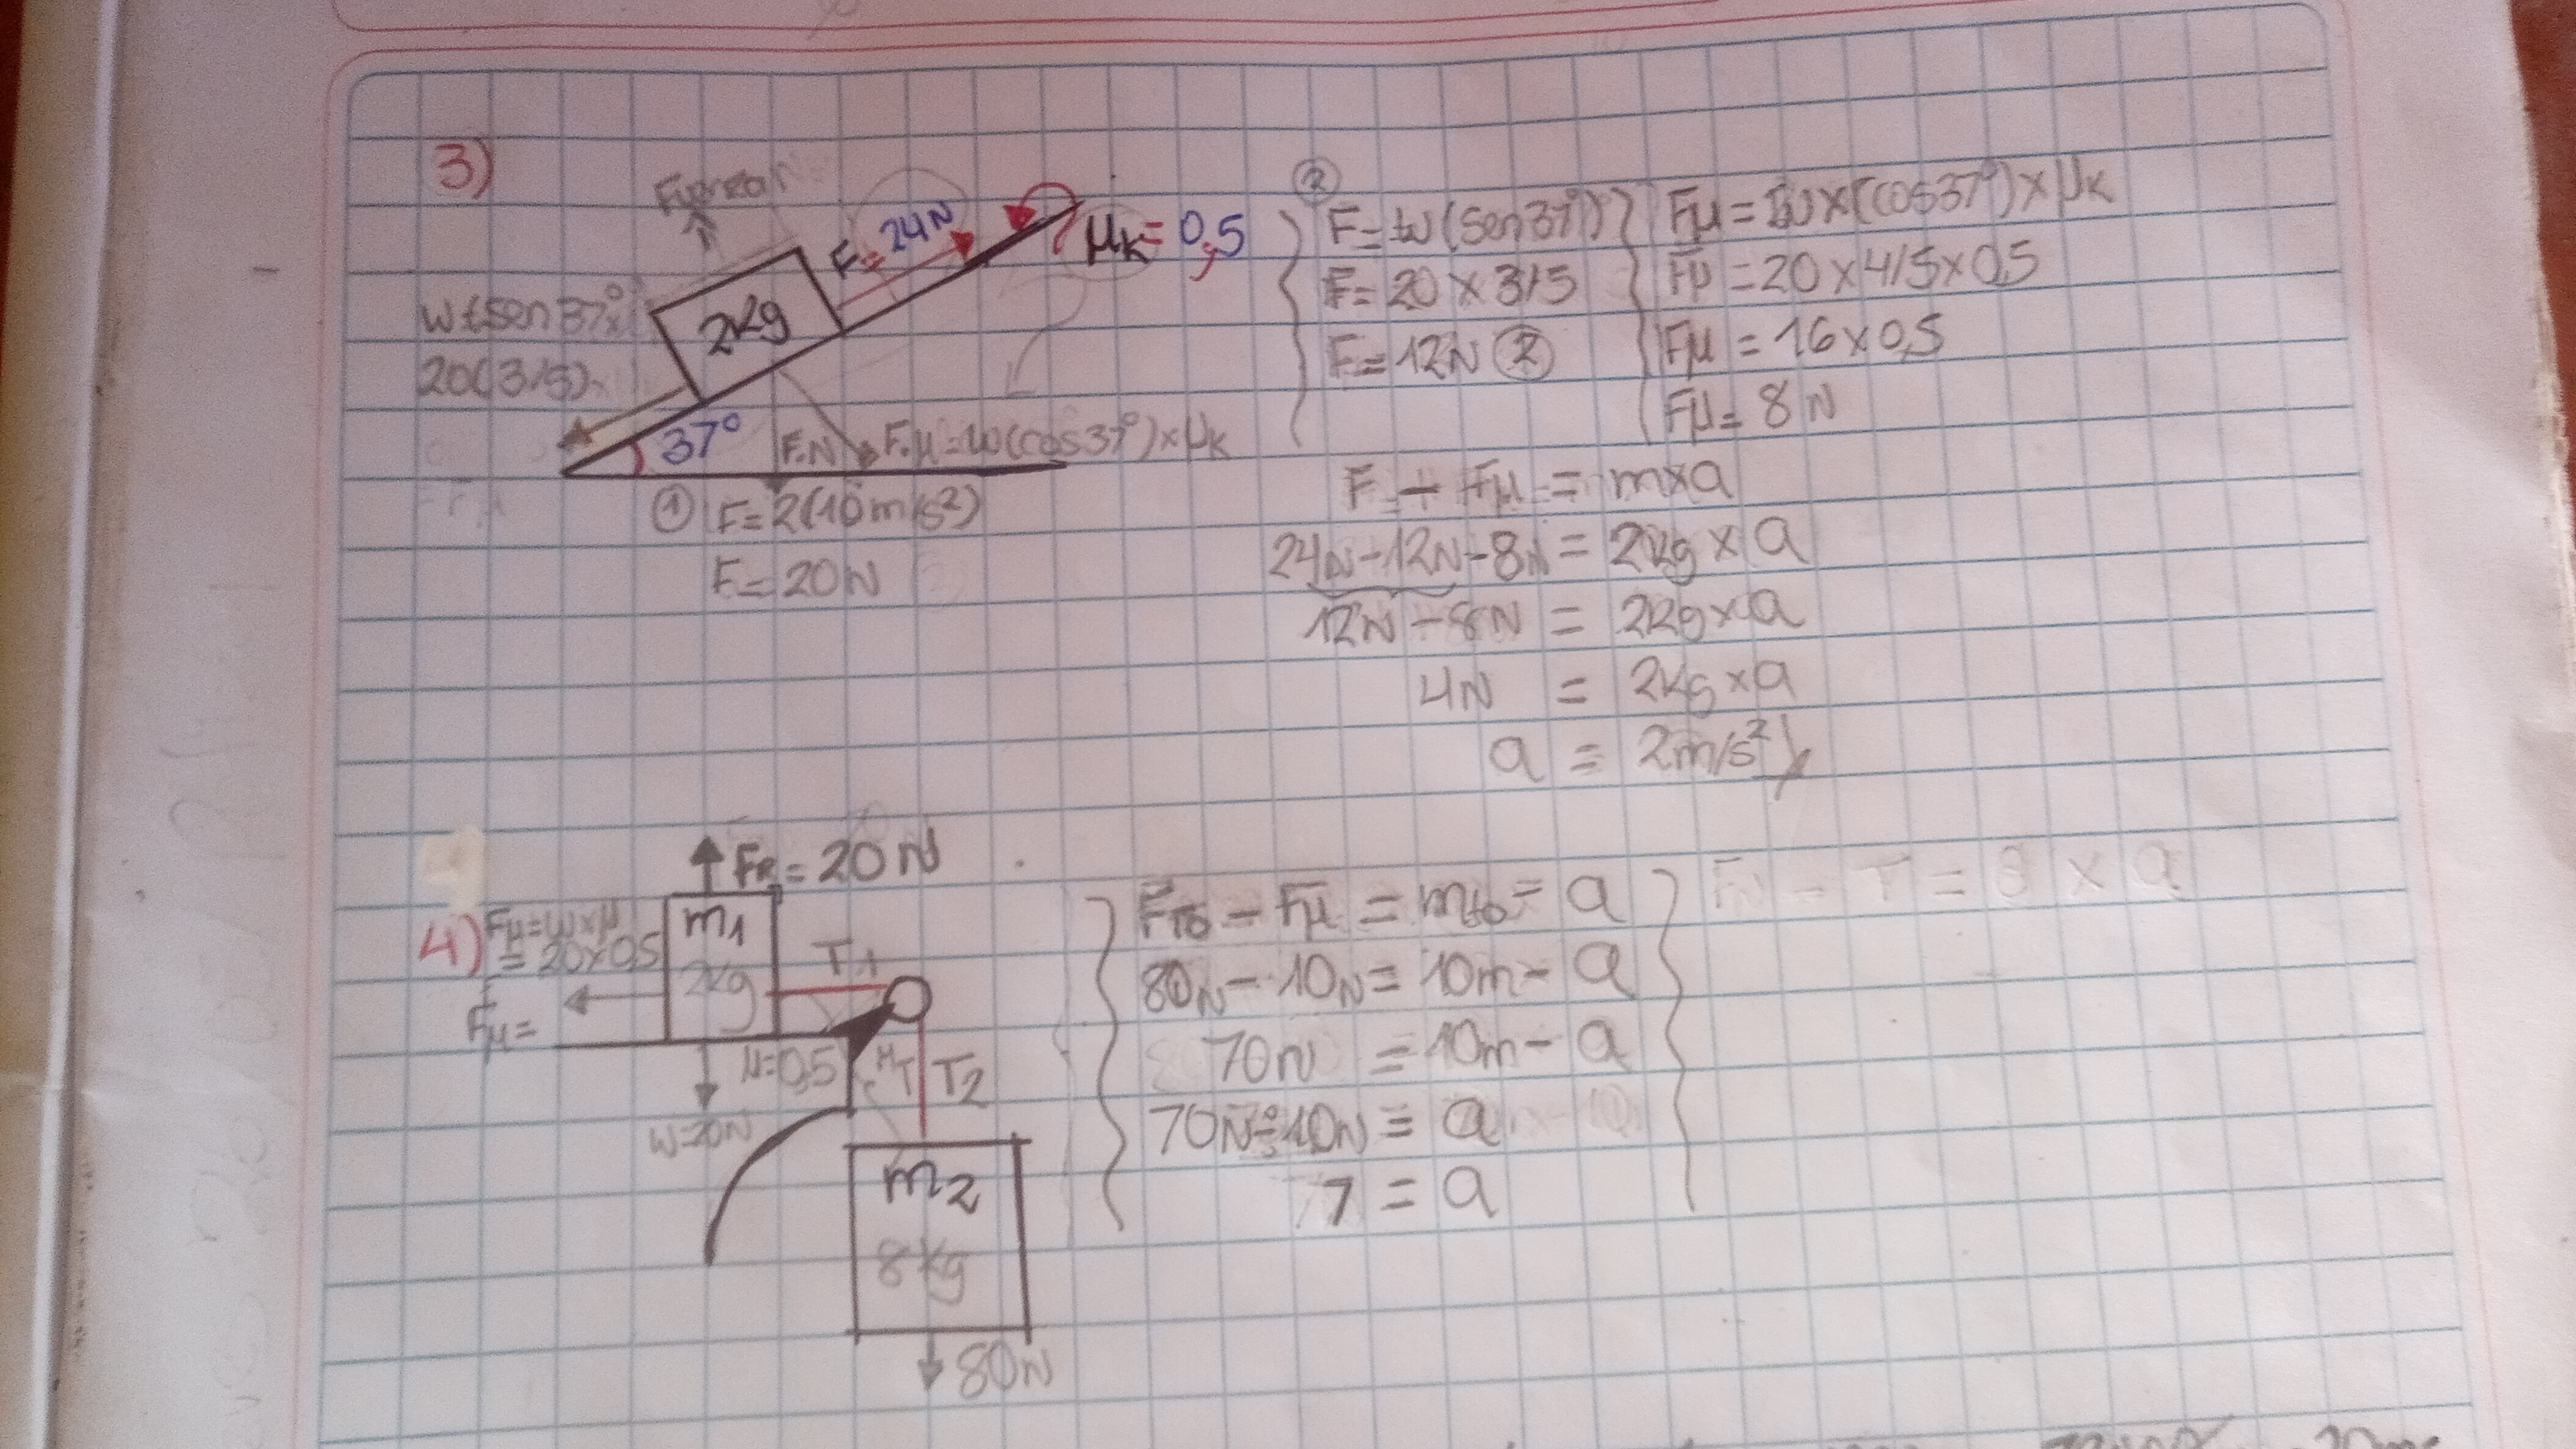 3)
F=24N
μk=0,5
2kg
20(3/5)
37°
F.N
F.μ=W(cos37°)xμk
① F=2(10m/s²)
F=20N
②
F=W(sen37°)
F=20x3/5
F=12N ②
Fμ=Wx(cos37°)xμk
Fμ=20x4/5x0,5
Fμ=16x0,5
Fμ=8N
F - Fμ = mxa
24N-12N-8N = 2kg x a
12N-8N = 2kg x a
4N = 2kg x a
a = 2m/s²
4)
FR=20N
Fμ=wxμ
=20x0,5
Fμ=
m1
2kg
T1
μ=0,5
T
T2
w=20N
m2
8kg
80N
Fμ = mto = a
80N - 10N = 10m - a
70N = 10m - a
70N÷10N = a
7 = a
- T = 8 x a